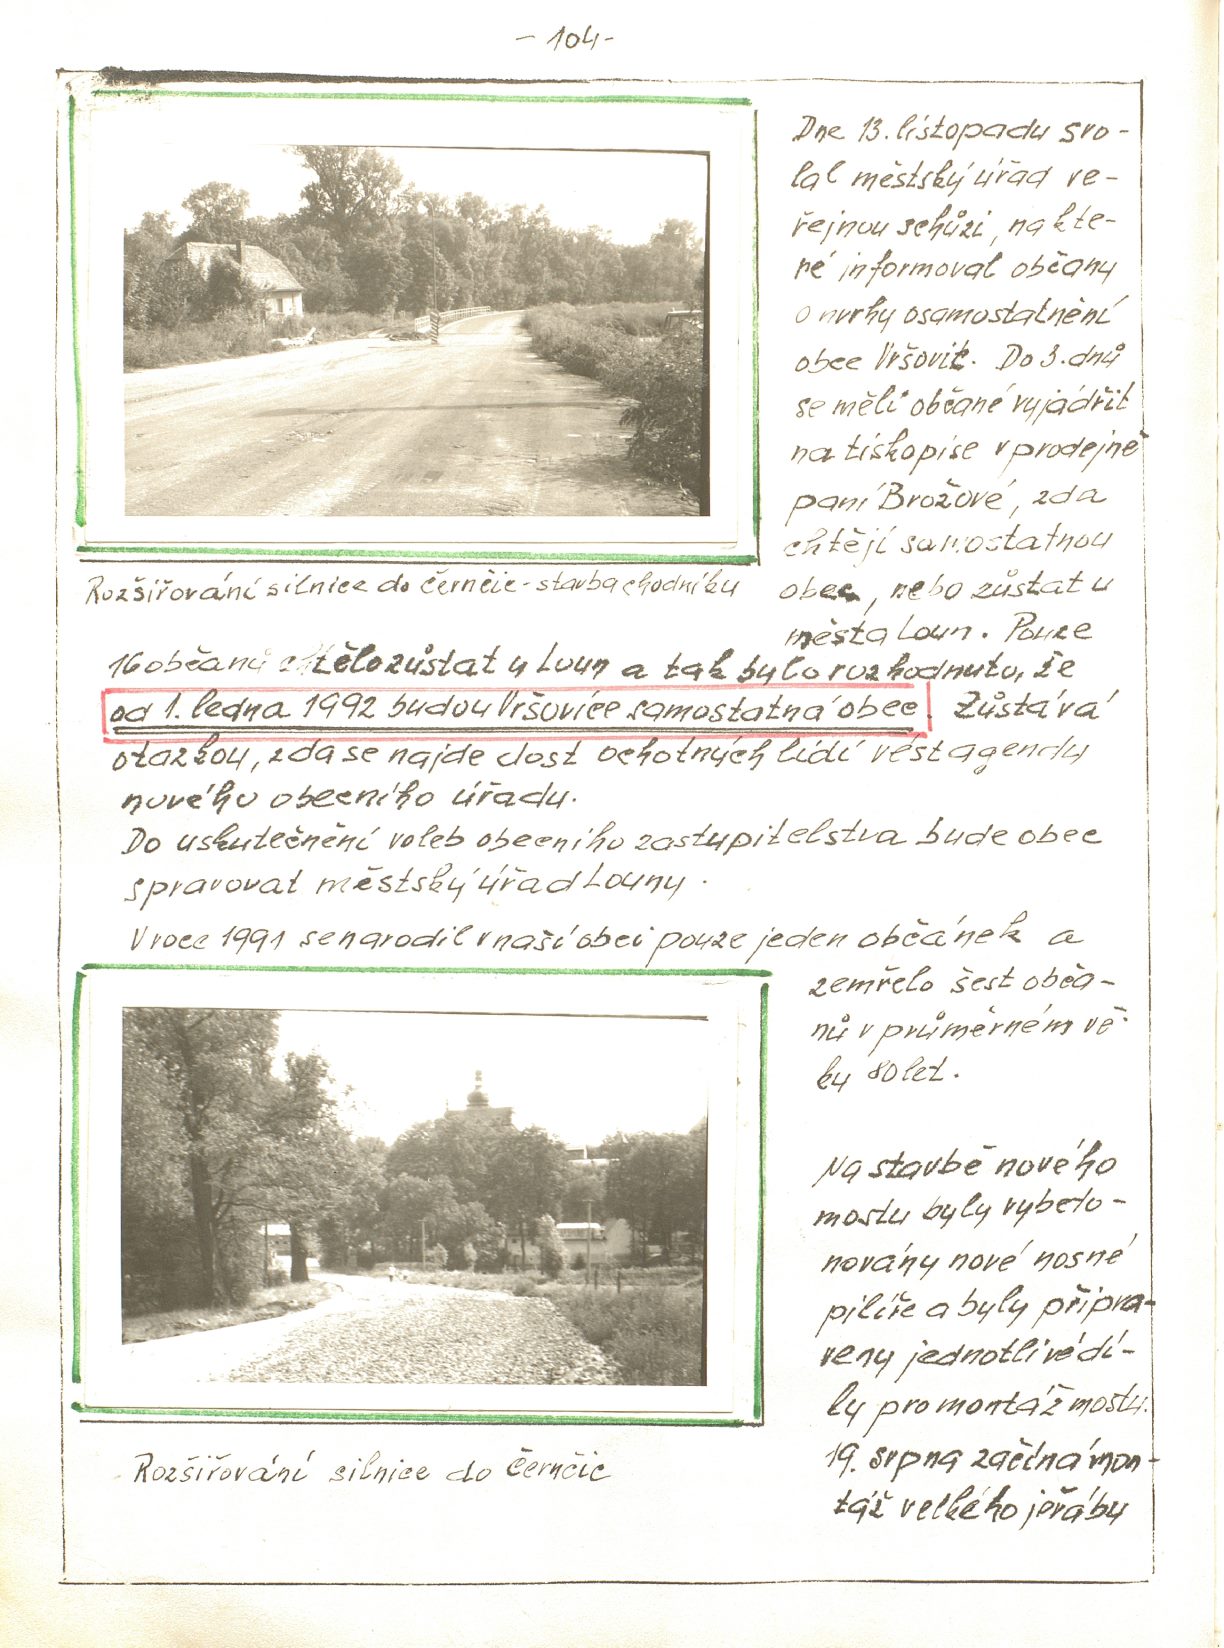 - 104 -
Dne 13. listopadu svo-
lal městský úřad ve-
řejnou schůzi, na kte-
ré informoval občany
o nvrhy osamostatnění
obce Vršovic. Do 3. dnů
se měli občané vyjádřit
na tiskopise v prodejně
paní Brožové, zda
chtějí samostatnou
obec, nebo zůstat u
města Loun. Pouze
Rozšiřování silnice do černčic - stavba chodníku
16 občanů chtělo zůstat u Loun a tak bylo rozhodnuto, že
od 1. ledna 1992 budou Vršovice samostatná obec. Zůstává
otázkou, zda se najde dost ochotných lidí vést agendu
nového obecního úřadu.
Do uskutečnění voleb obecního zastupitelstva bude obec
spravovat městský úřad Louny.
V roce 1991 se narodil v naší obci pouze jeden občánek a
zemřelo šest obča-
nů v průměrném vě-
ku 80 let.
Na stavbě nového
mostu byly vybeto-
novány nové nosné
pilíře a byly připra-
veny jednotlivé dí-
ly pro montáž mostu.
19. srpna začíná mon-
táž velkého jeřábu
Rozšiřování silnice do černčic